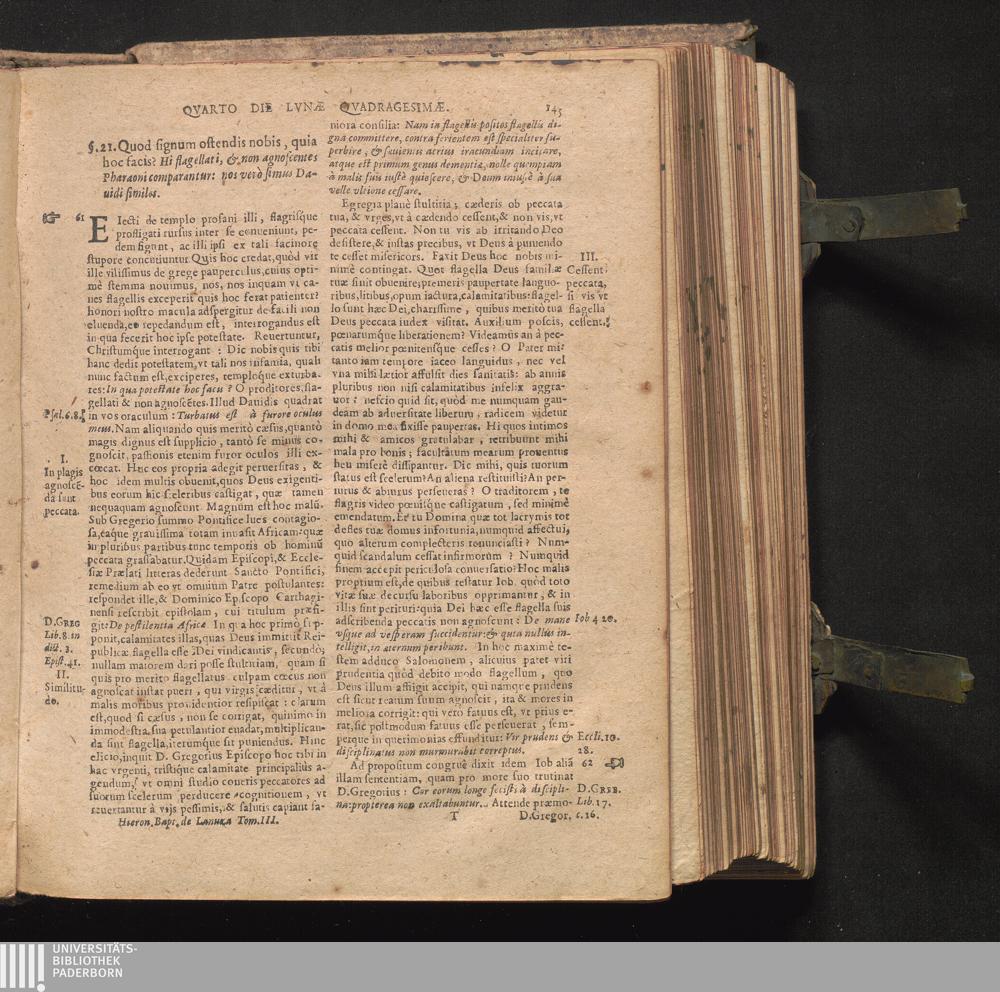 QVARTO DIE LVNÆ QVADRAGESIMÆ. 145
§.21. Quod signum ostendis nobis, quia
hoc facis? Hi flagellati, & non agnoscentes
Pharaoni comparantur: nos verò simus Da-
uidi similes.
61
EIecti de templo profani illi, flagrisque
profligati rursus inter se conueniunt, pe-
dem figunt, ac illi ipsi ex tali facinore
stupore concutiuntur. Quis hoc credat, quòd vir
ille vilissimus de grege pauperculus, cuius opti-
mè stemma nouimus, nos, nos inquam vt ca-
nes flagellis exceperit quis hoc ferat patienter?
honori nostro macula adspergitur de facili non
eluenda, eo repedandum est, interrogandus est
in qua fecerit hoc ipse potestate. Reuertuntur,
Christumque interrogant: Dic nobis quis tibi
hanc dedit potestatem, vt tali nos infamia, quali
nunc factum est, exciperes, temploque exturba-
res: In qua potestate hoc facis? O proditores, fla-
gellati & non agnoscētes. Illud Dauidis quadrat
Psal.6.8. in vos oraculum: Turbatus est à furore oculus
meus. Nam aliquando quis meritò cæsus, quantò
magis dignus est supplicio, tantò se minus co-
gnoscit, passionis etenim furor oculos illi ex-
cœcat. Hęc eos propria adegit peruersitas, &
hoc idem multis obuenit, quos Deus exigenti-
bus eorum hic sceleribus castigat, quæ tamen
nequaquam agnoscunt. Magnum est hoc malū.
I.
In plagis
agnoscē-
da sunt
peccata.
Sub Gregorio summo Pontifice lues contagio-
sa, eaque grauissima totam inuasit Africam: quæ
in pluribus partibus tunc temporis ob hominū
peccata grassabatur. Quidam Episcopi, & Eccle-
siæ Prælati litteras dederunt Sancto Pontifici,
remedium ab eo vt omnium Patre postulantes:
respondet ille, & Dominico Episcopo Carthagi-
nensi rescribit epistolam, cui titulum præfi-
git: De pestilentia Africæ. In qua hoc primò sup-
ponit, calamitates illas, quas Deus immittit Rei-
publicæ flagella esse Dei vindicantis, secundò;
nullam maiorem dari posse stultitiam, quam si
quis pro merito flagellatus culpam cœcus non
agnoscat instat pueri, qui virgis cæditur, vt à
malis moribus prouidentior resipiscat: clarum
est, quod si cæsus, non se corrigat, quinimo in
immodestia sua petulantior euadat, multiplican-
da sint flagella, iterumque sit puniendus. Hinc
elicio, inquit D. Gregorius Episcopo hoc tibi in
hac vrgenti, tristique calamitate principalius a-
gendum, vt omni studio coneris peccatores ad
suorum scelerum perducere cognitionem, vt
reuertantur à vijs pessimis, & salutis capiant sa-
D.GREG
Lib.8.in
dict. 3.
Epist.41.
II.
Similitu-
do.
Hieron. Bapt. de Lanuza Tom.III.
niora consilia: Nam in flagellis positos flagellis di-
gna committere, contra ferientem est specialiter su-
perbire, & sæuientis acrius iracundiam incitare,
atque est primum genus dementiæ, nolle quempiam
à malis suis iustè quiescere, & Deum iniustè à sua
velle vltione cessare.
Egregia planè stultitia; cæderis ob peccata
tua, & vrges, vt à cædendo cessent, & non vis, vt
peccata cessent. Non tu vis ab irritando Deo
desistere, & instas precibus, vt Deus à puniendo
te cesset misericors. Faxit Deus hoc nobis mi-
nimè contingat. Quot flagella Deus familiæ
tuæ sinit obuenire; premeris paupertate languo-
ribus, litibus, opum iactura, calamitatibus: flagel-
lo sunt hæc Dei, charissime, quibus meritò tua
Deus peccata iudex visitat. Auxilium poscis,
pœnarumque liberationem? Videamus an à pec-
catis melior pœnitensque cesses? O Pater mi:
tanto iam tempore iaceo languidus, nec vel
vna mihi lætior affulsit dies sanitatis: ab annis
pluribus non nisi calamitatibus infelix aggra-
uor: nescio quid sit, quòd me numquam gau-
deam ab aduersitate liberum, radicem videtur
in domo mea fixisse paupertas. Hi quos intimos
mihi & amicos gratulabar, retribuunt mihi
mala pro bonis; facultatum mearum prouentus
heu miserè dissipantur. Dic mihi, quis tuorum
status est scelerum? An aliena restituisti? An per-
iurus & abiurus perseueras? O traditorem, te
flagris video pœnisque castigatum, sed minimè
emendatum. Et tu Domina quæ tot lacrymis tot
defles tuæ domus infortunia, numquid affectui,
quo alterum complecteris renunciasti? Num-
quid scandalum cessat infirmorum? Numquid
finem accepit periculosa conuersatio? Hoc malis
proprium est, de quibus testatur Iob, quòd toto
vitæ suæ decursu laboribus opprimantur, & in
illis sint perituri: quia Dei hæc esse flagella suis
adscribenda peccatis non agnoscunt: De mane
vsque ad vesperam succidentur: & quia nullus in-
telligit, in æternum peribunt. In hoc maximè te-
stem adduco Salomonem, alicuius patet viri
prudentia quòd debito modo flagellum, quo
Deus illum affligit accipit, qui namque prudens
est sicut reatum suum agnoscit, ita & mores in
meliora corrigit: qui verò fatuus est, vt prius e-
rat, sic postmodum fatuus esse perseuerat, sem-
perque in querimonias effunditur: Vir prudens &
disciplinatus non murmurabit correptus.
III.
Cessent
peccata,
si vis vt
flagella
cessent.
Iob 4.20.
Eccli.10.
28.
Ad propositum congruè dixit idem Iob aliā 62
illam sententiam, quam pro more suo trutinat
D. Gregorius: Cor eorum longe fecisti à discipli-
na: propterea non exaltabuntur. Attende præmo-
D.GREG.
Lib.17.
T D.Gregor. c.16.
UNIVERSITÄTS-
BIBLIOTHEK
PADERBORN